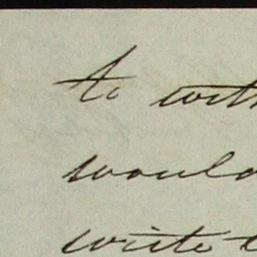 to with
would
write t